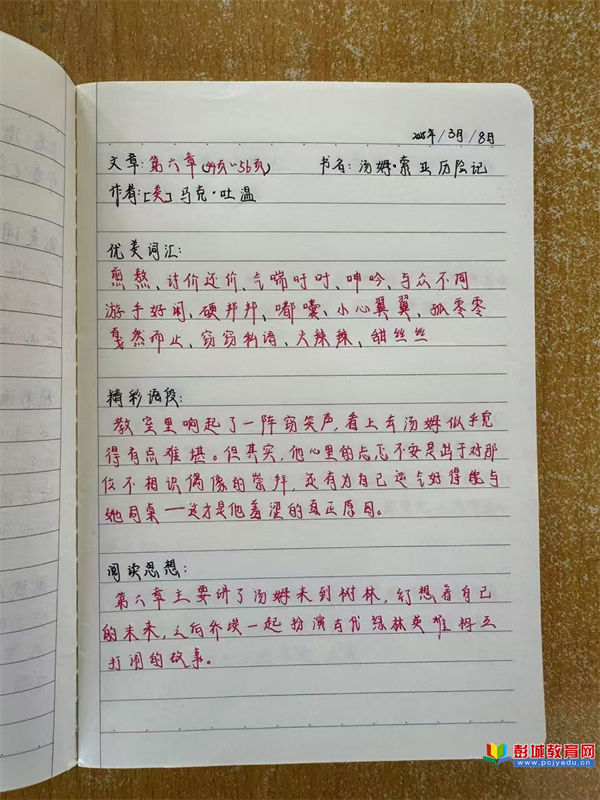 2025年/3月/8月
文章:第六章(44页~56页) 书名:汤姆·索亚历险记
作者:[美]马克·吐温
优美词汇:
煎熬、讨价还价、气喘吁吁、呻吟、与众不同
游手好闲、硬邦邦、嘟囔、小心翼翼、孤零零
戛然而止、窃窃私语、大辣辣、甜丝丝
精彩语段:
教室里响起了一阵窃笑声,看上去汤姆似乎觉
得有点难堪。但其实,他心里的忐忑不安是出于对那
位不相识偶像的崇拜,还有为自己运气好得能与
她同桌——这才是他羞涩的真正原因。
阅读思想:
第六章主要讲了汤姆来到树林,幻想着自己
的未来,之后乔埃一起扮演古代绿林英雄相互
打闹的故事。
彭城教育网
www.pcjyedu.com.cn